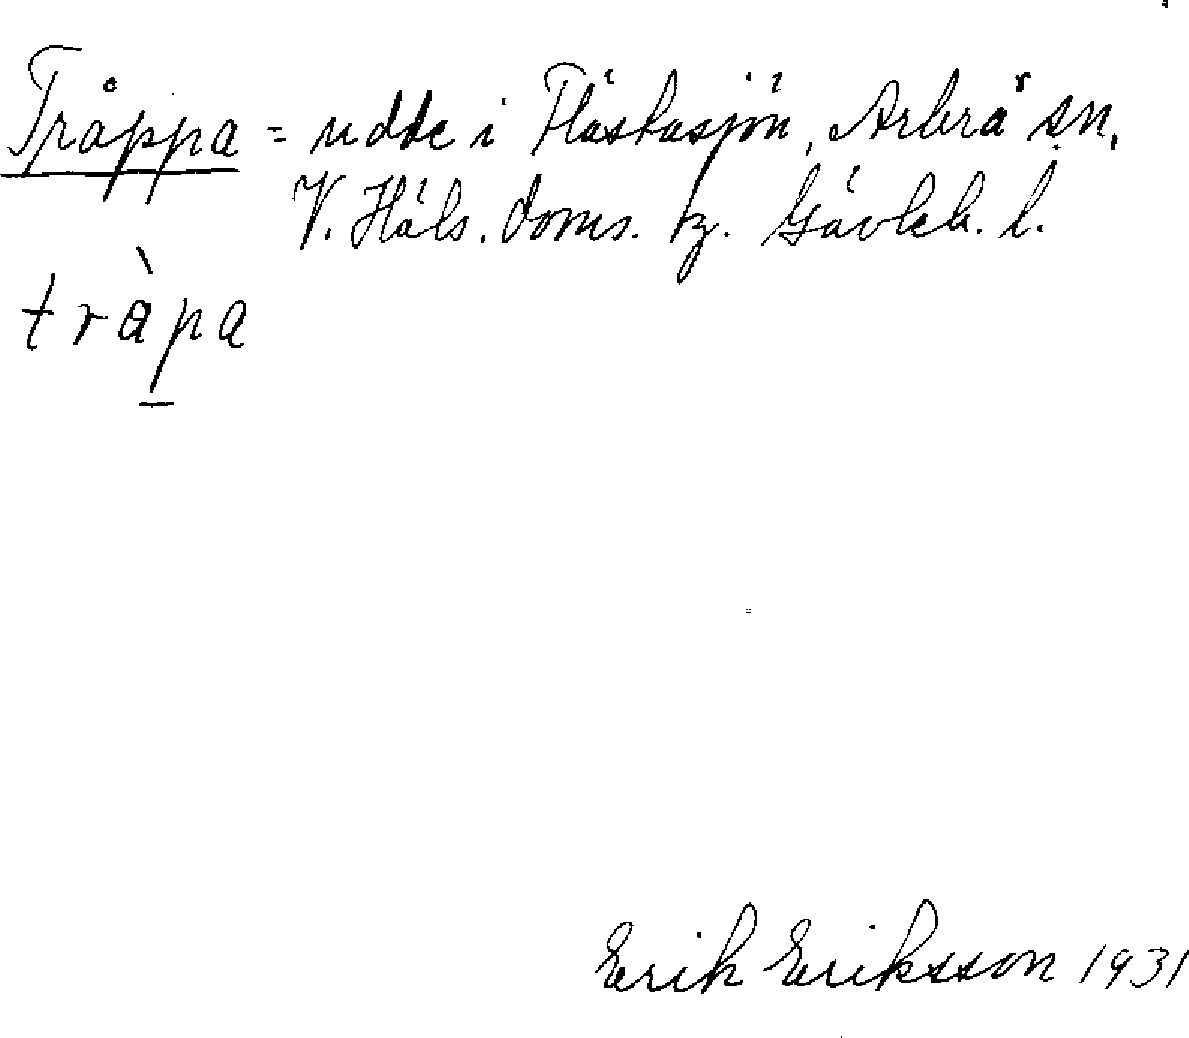 Tråppa = udde i Fläskasjön, Arbrå sn,
V. Häls. doms. kg. Gävleb. l.
tråpa
Erik Eriksson 1931